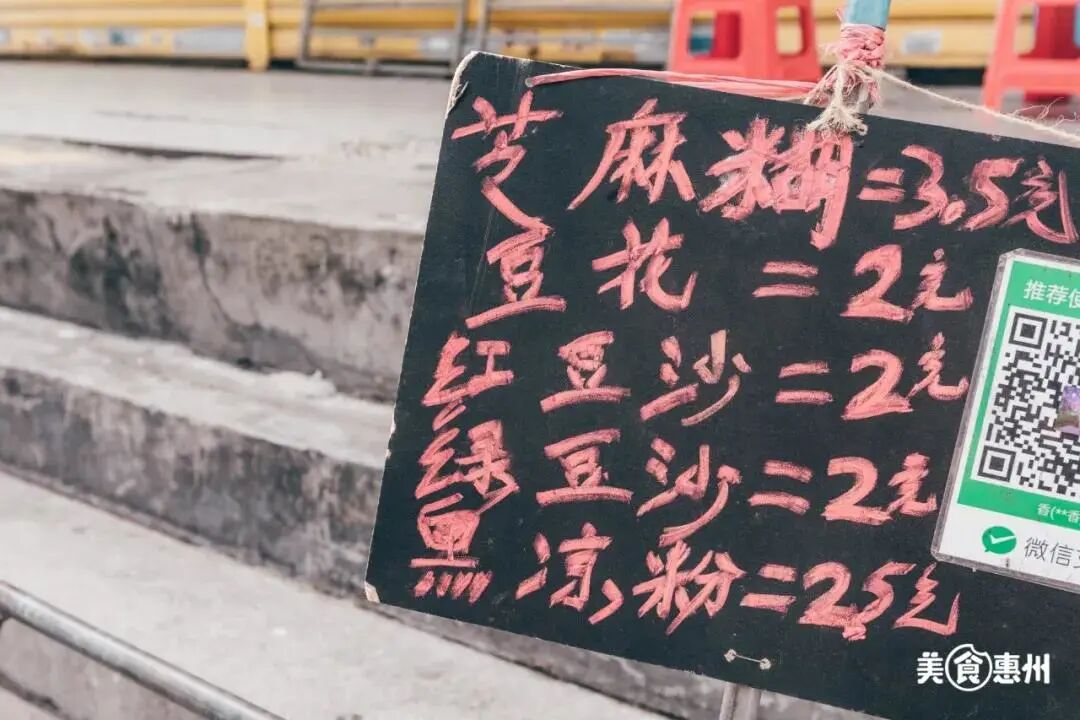 芝麻糊=3.5元
豆花=2元
红豆沙=2元
绿豆沙=2元
黑凉粉=2.5元
推荐使
香(**香
微信支
美食惠州